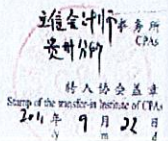 立信会计师事务所
CPAs
贵州分所
转入协会盖章
Stamp of the transfer-in Institute of CPAs
2011年9月22日
y m d